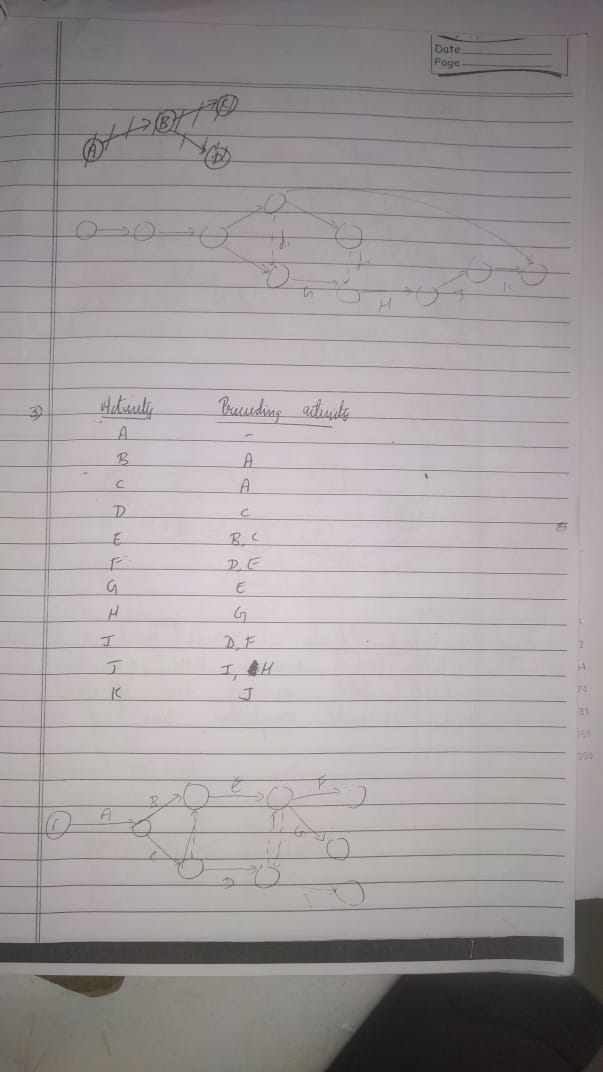 Date
Page
A B C
D
d₁
d₂
G
H J K
3) Activity Preceding activity
A -
B A
C A
D C
E B, C
F D, E
G E
H G
I D, F
J I, H
K J
1 A B E F
C G
D